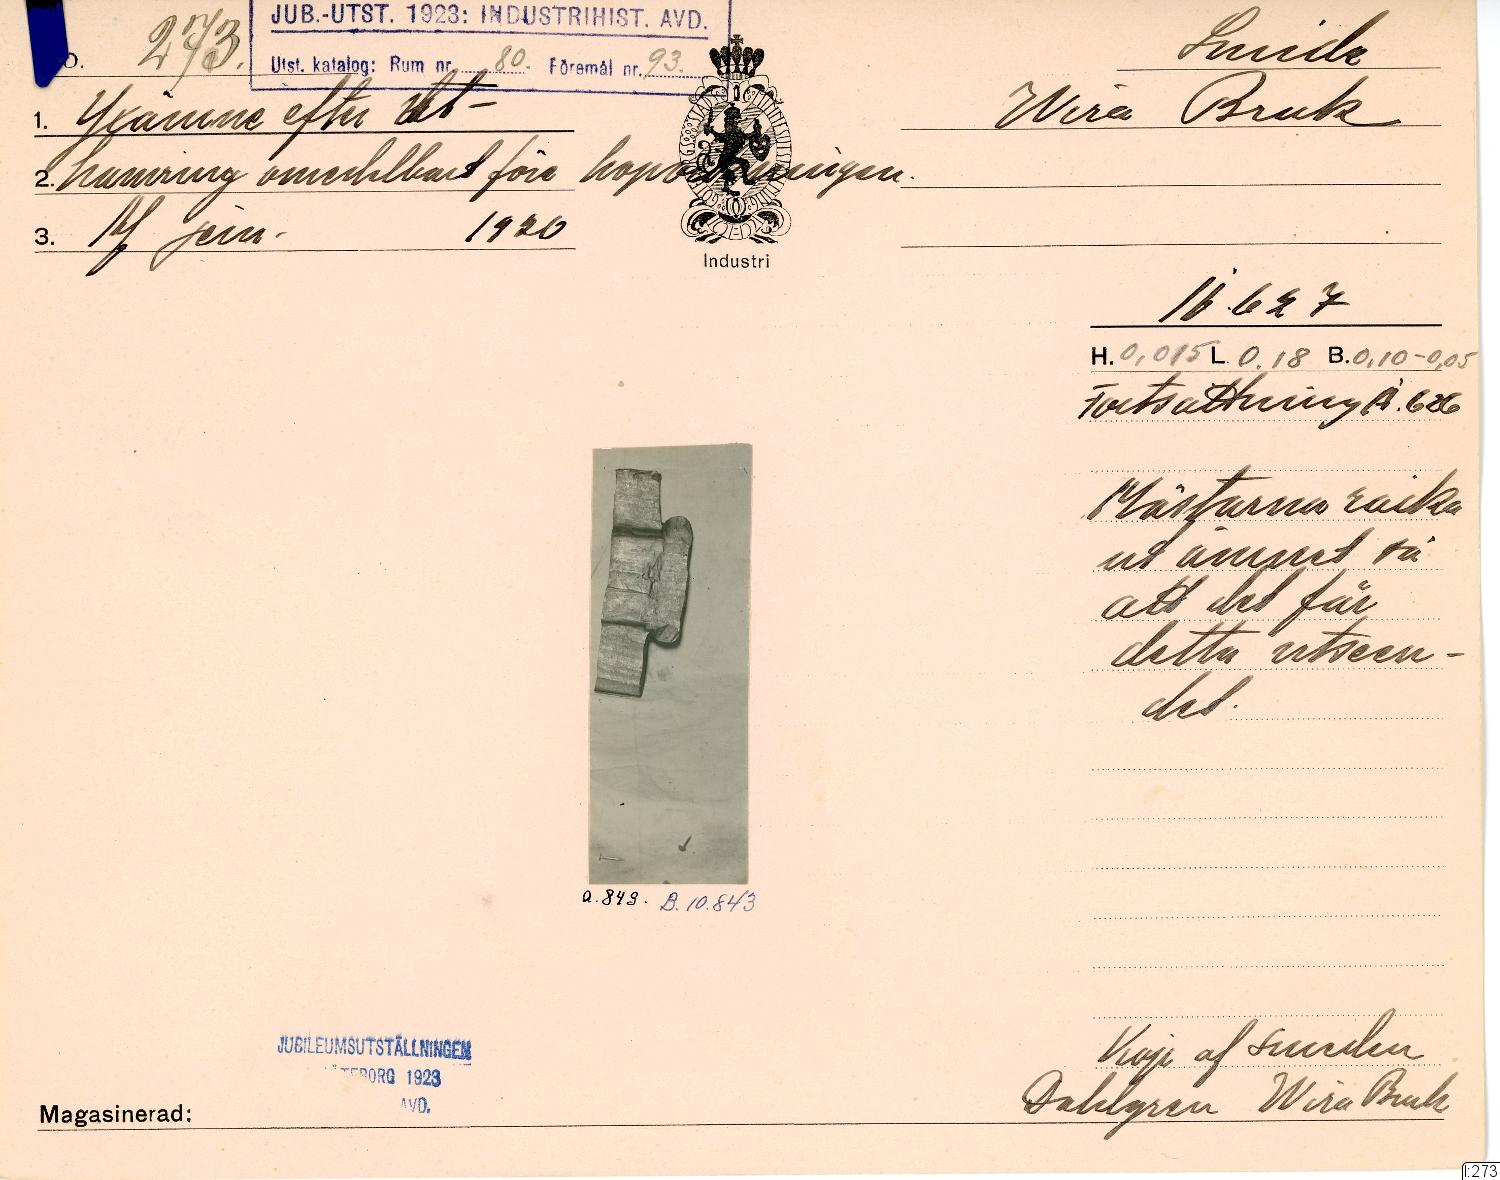 JUB.-UTST. 1923: INDUSTRIHIST. AVD.
Utst. katalog: Rum nr. 80. Föremål nr. 93.
o. 273.
Smide
1. Yxämne efter ut-
Wira Bruk
2. hamring omedelbart före hopvällningen.
3. Af jern. 1920
Industri
627
H. 0,015 L. 0.18 B. 0,10-0,05
Fortsättning 626
Mästarna räcka
ut ämnet så
att det får
detta utseen-
det.
a. 849. B. 10.843
JUBILEUMSUTSTÄLLNINGEN
GÖTEBORG 1923
AVD.
Köp af smeden
Dahlgren Wira Bruk
Magasinerad:
I:273